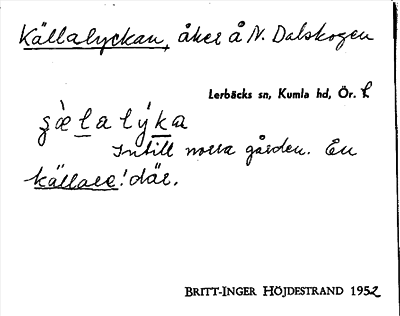 Källalyckan, åker å N. Dalskogen
Lerbäcks sn, Kumla hd, Ör. l.
ʒæ̀lalýka
Intill norra gården. En
källare! där.
BRITT-INGER HÖJDESTRAND 1952